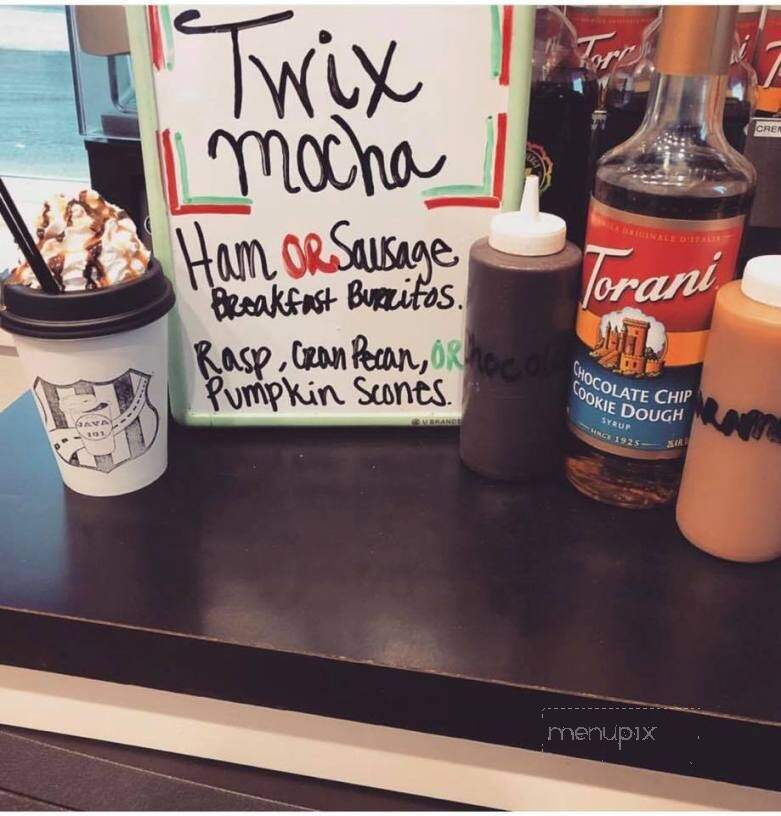 Twix
mocha
Ham OR Sausage
Breakfast Burritos.
Rasp, Cran Pecan, OR
Pumpkin Scones.
U BRANDS
JAVA
101
Chocola
Torani
CHOCOLATE CHIP
COOKIE DOUGH
SYRUP
SINCE 1925
Torani
CREM
menupix